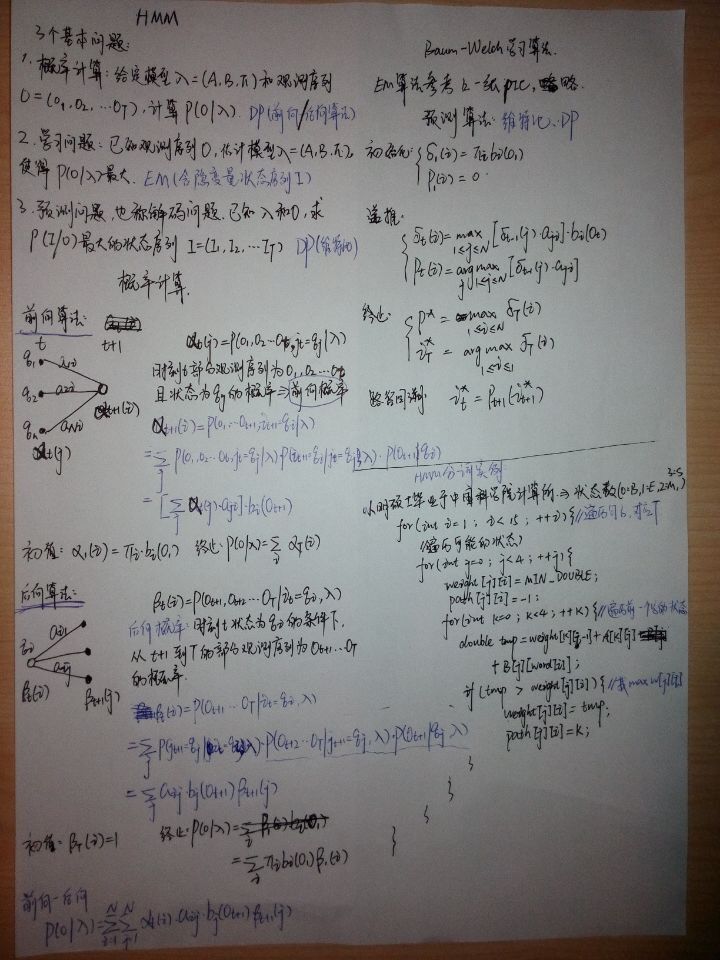 HMM
3个基本问题:
1. 概率计算: 给定模型 λ=(A,B,π) 和观测序列
O=(o₁,o₂,…oT), 计算 P(O|λ). DP(前向/后向算法)
2. 学习问题: 已知观测序列O, 估计模型 λ=(A,B,π),
使得 P(O|λ) 最大. EM(含隐变量状态序列I)
3. 预测问题, 也称解码问题. 已知 λ和O, 求
P(I|O) 最大的状态序列 I=(I₁,I₂,…IT) DP(维特比)
概率计算.
前向算法:
t t+1
q₁ a₁i
q₂ a₂i
qN aNi
αt+1(i)
αt(j)
αt(j)=P(o₁,o₂…ot,it=qj|λ)
时刻t部分观测序列为 o₁,o₂…ot
且状态为qj的概率⇒前向概率
αt+1(i)=P(o₁…ot+1,it+1=qi|λ)
=∑j P(o₁,o₂…ot,it=qj|λ)·P(it+1=qi|it=qj,λ)·P(ot+1|qi)
=[∑j αt(j)·aji]·bi(ot+1)
初值: α₁(i)=πi·bi(o₁) 终止: P(O|λ)=∑i αT(i)
后向算法:
ai1
qi
aij
βt(i) βt+1(j)
βt(i)=P(ot+1,ot+2…oT|it=qi,λ)
后向概率: 时刻t状态为qi的条件下,
从t+1到T的部分观测序列为ot+1…oT
的概率.
βt(i)=P(ot+1…oT|it=qi,λ)
=∑j P(it+1=qj|it=qi,λ)·P(ot+2…oT|it+1=qj,λ)·P(ot+1|it+1=qj,λ)
=∑j aij·bj(ot+1)βt+1(j)
初值: βT(i)=1 终止: P(O|λ)=
=∑i πi bi(o₁)β₁(i)
前向-后向
P(O|λ)=∑i=1N∑j=1N αt(i)·aij·bj(ot+1)βt+1(j)
Baum-Welch学习算法.
EM算法参考上一张 略.
预测算法: 维特比. DP
初始化: {δ₁(i)=πi bi(o₁)
ρ₁(i)=0
递推:
{δt(i)=max 1≤j≤N [δt-1(j)·aji]·bi(ot)
ρt(i)=argmax 1≤j≤N [δt-1(j)·aji]
终止: {P*=max 1≤i≤N δT(i)
iT*=argmax 1≤i≤ δT(i)
路径回溯: it*=ρt+1(it+1*)
HMM分词实例:
小明硕士毕业于中国科学院计算所. ⇒ 状态数(0=B,1=E,2=M, 3=S)
for(int i=1; i<15; ++i){ //遍历
//遍历可能的状态
for(int j=0; j<4; ++j){
weight[j][i]=MIN_DOUBLE;
path[j][i]=-1;
for(int k=0; k<4; ++k){ //遍历前一个字的状态
double tmp=weight[k][i-1]+A[k][j]
+B[j][word[i]];
if(tmp > weight[j][i]){ //找max w[j][i]
weight[j][i]=tmp;
path[j][i]=k;
}
}
}
}